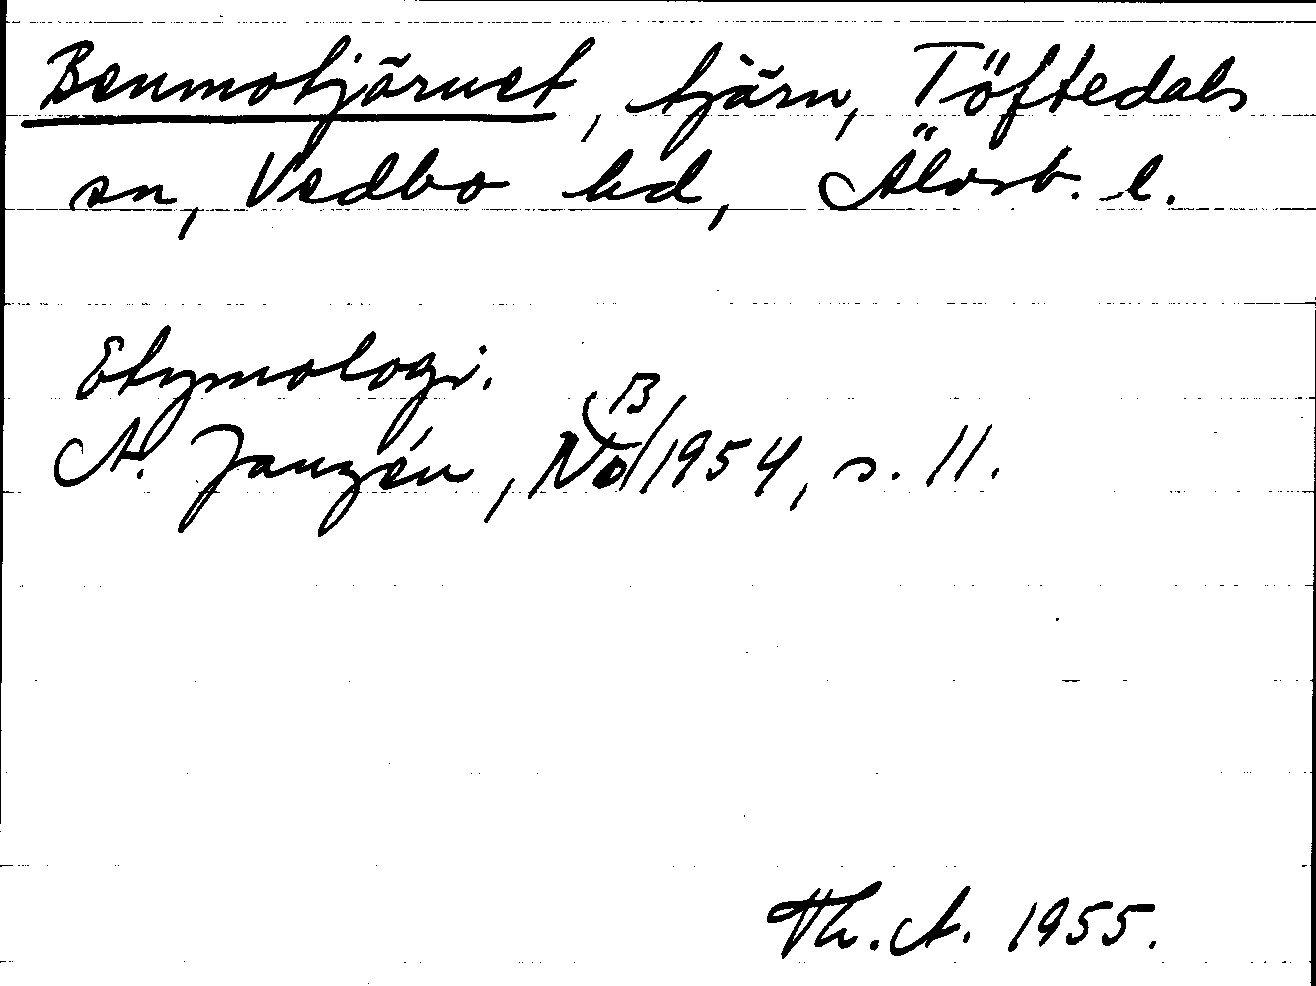 Benmotjärnet, tjärn, Töftedals
sn, Vedbo hd, Älvsb. l.
Etymologi.
A. Janzén, NoB 1954, s. 11.
Th. A. 1955.